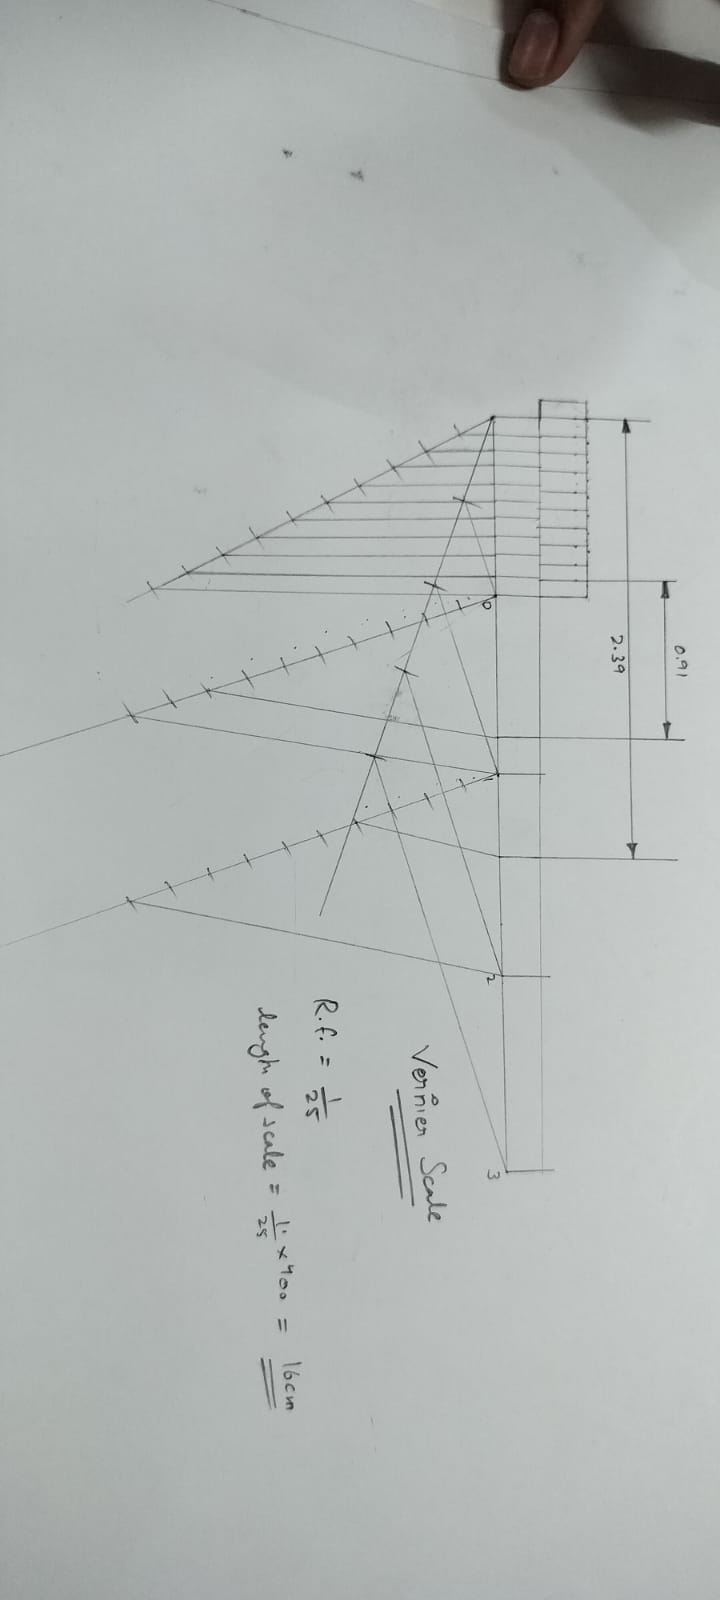 0.91
2.39
0 1 2 3
Vernier Scale
R.f. = 1/25
length of scale = 1/25 x 400 = 16cm